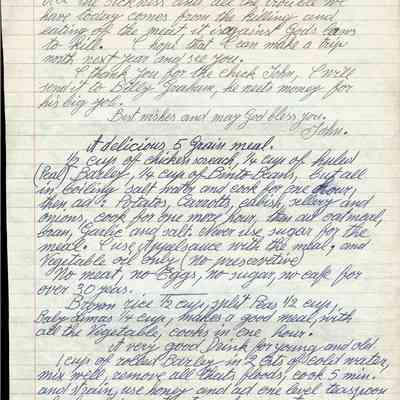 all the sickness and all the trouble we
have today comes from the killing and
eating off the meat, it is against Gods laws
to kill. I hope that I can make a trip
north next year and see you.
I thank you for the check John, I will
send it to Billy Graham, he needs money for
his big job.
Best wishes and may God bless you.
John.
A delicious, 5 Grain meal.
1/2 cup of chicken screach, 1/4 cup of huled
Barley, 1/4 cup of Binto Beans, but all
in boiling salt water and cook for one hour,
then ad: Potatos, Carrots, cabish, sellery and
onions, cook for one more hour, then ad oatmeal,
bran, Garlic and salt. Never use sugar for the
meal. I use Applesauce with the meal, and
Vegetable oil only (no preservetive)
No meat, no Eggs, no sugar, no cafe for
over 30 years.
Brown rice 1/2 cup, split Peas 1/2 cup,
Baby Limas 1/4 cup, makes a good meal, with
all the Vegetable, cooks in one hour.
A very good Drink for young and old
1 cup of rolled Barley in 2 Qts of cold water,
mix well, remove all thats floods, cook 5 min.
and strain, use honey and ad one level teaspoon